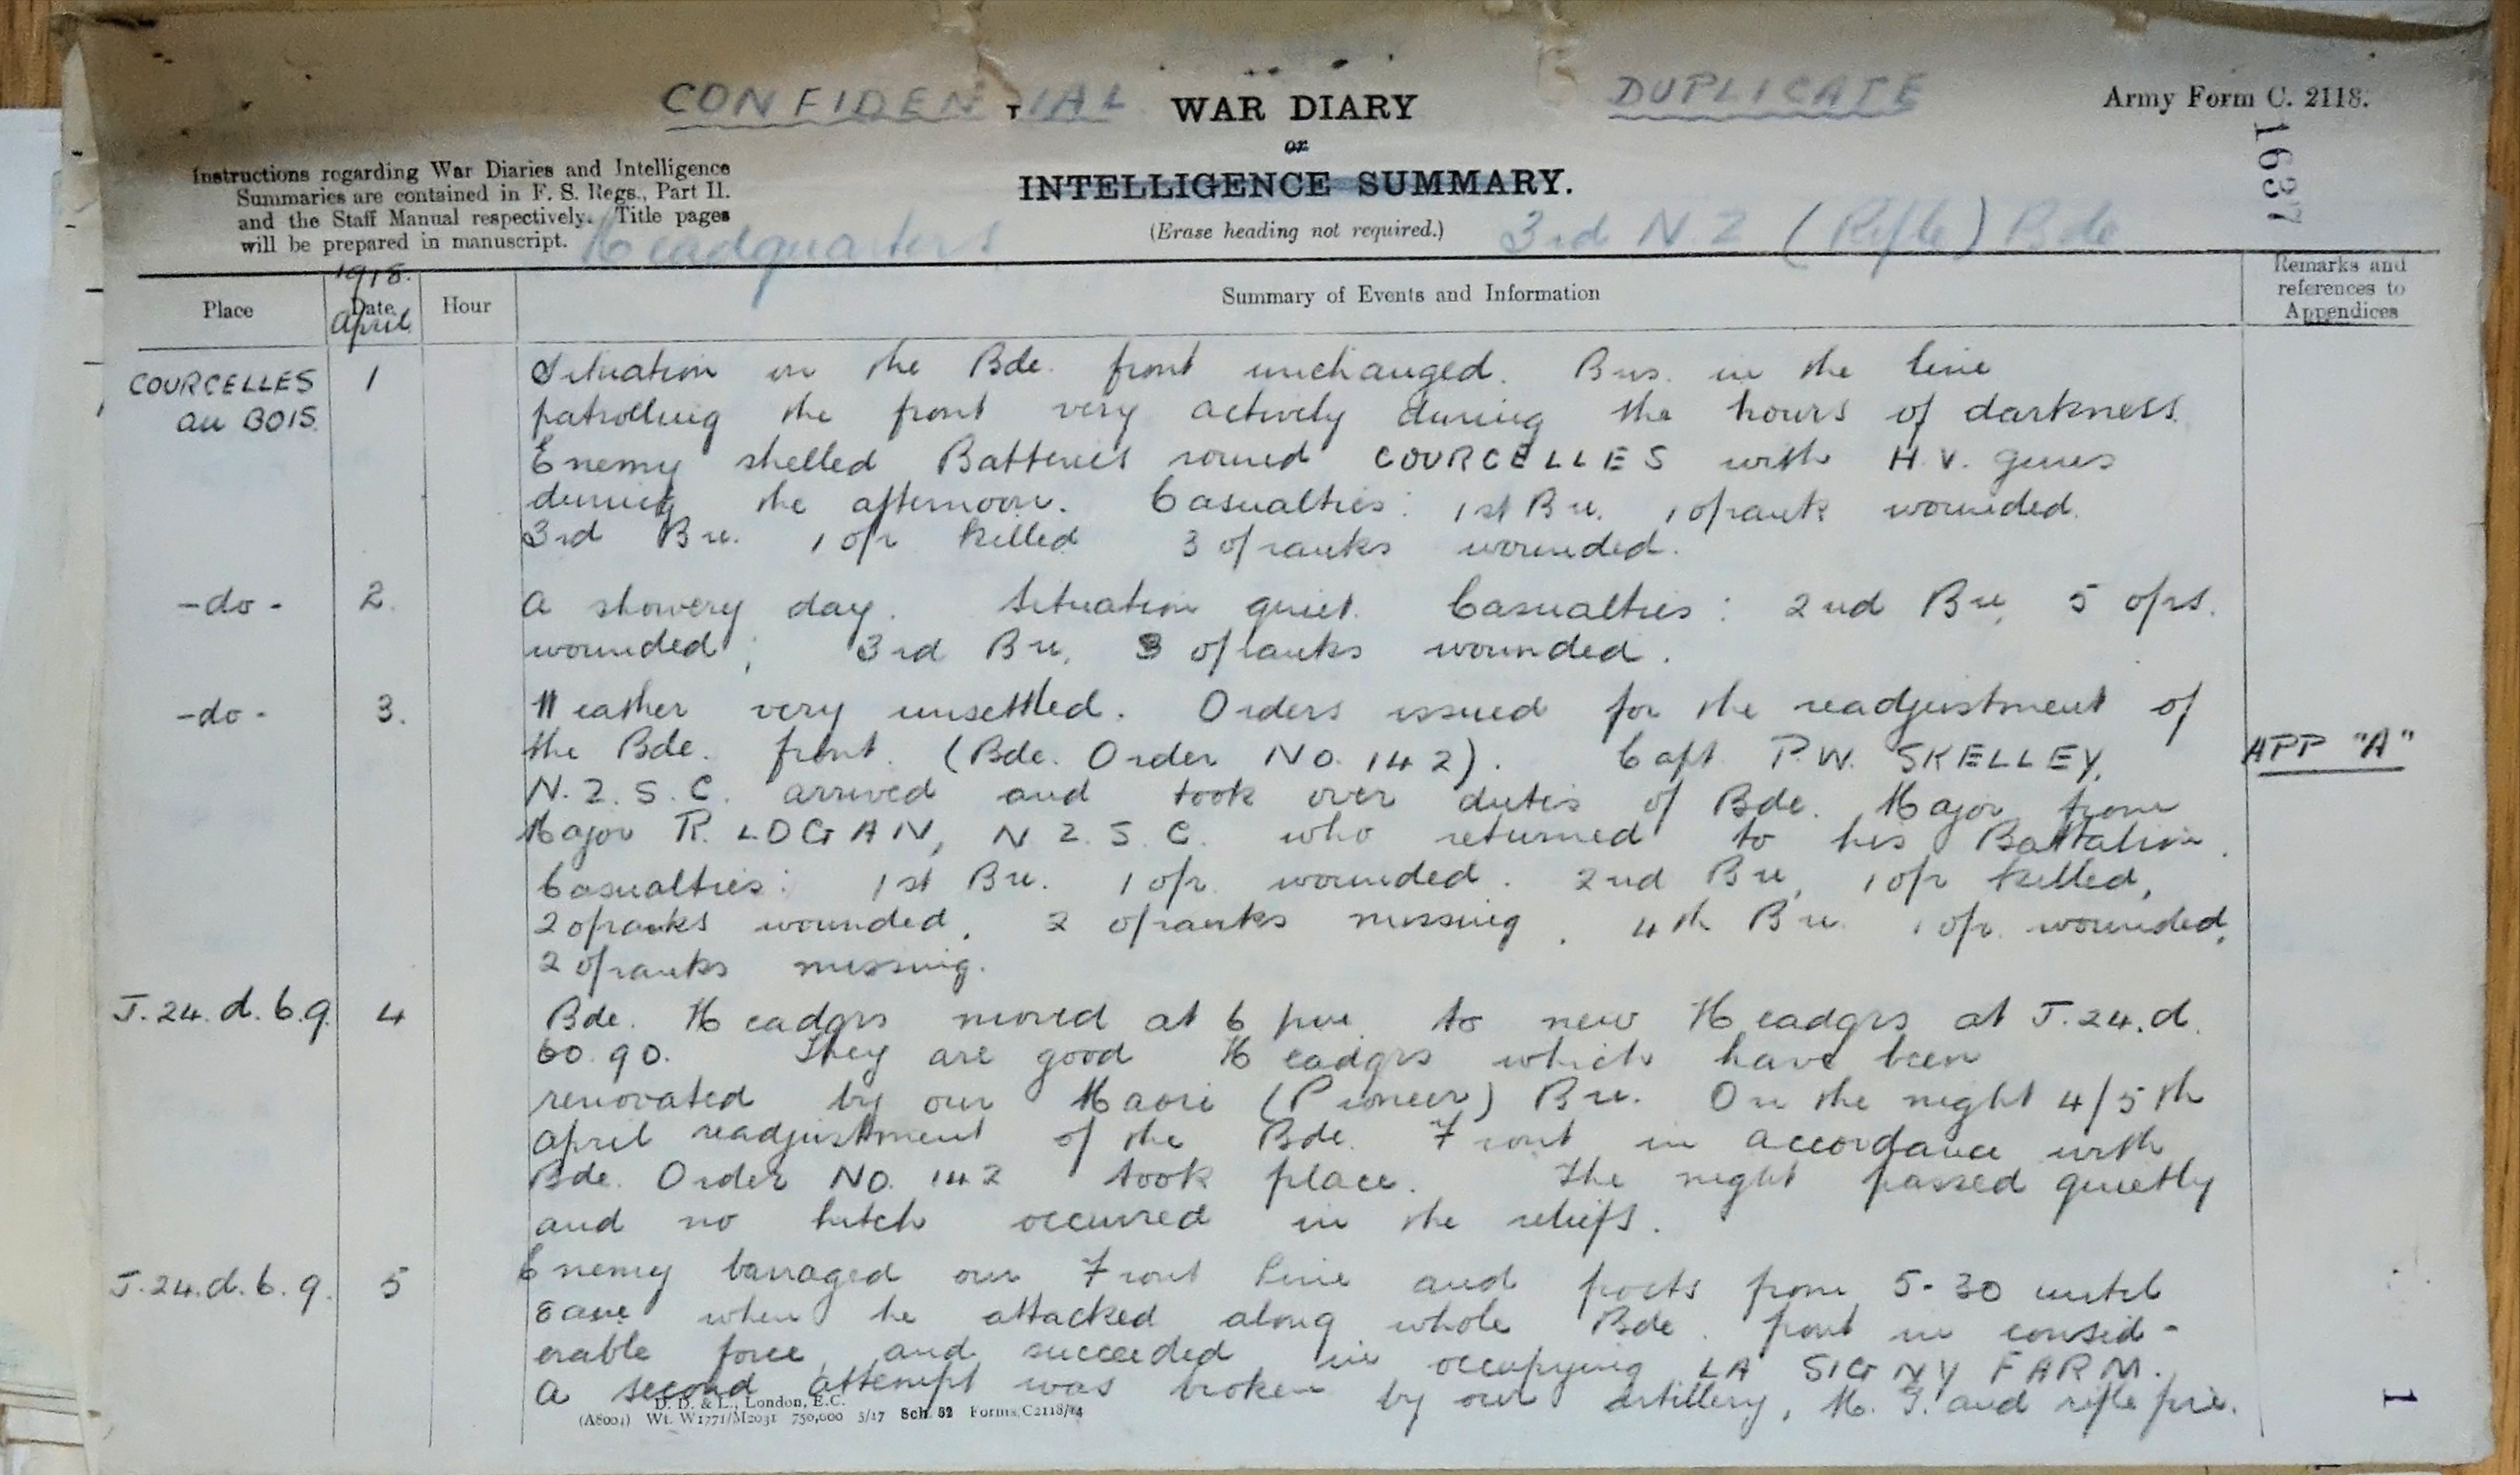 CONFIDENTIAL
WAR DIARY
DUPLICATE
Army Form C. 2118.
or
1637
INTELLIGENCE SUMMARY.
(Erase heading not required.)
Instructions regarding War Diaries and Intelligence
Summaries are contained in F. S. Regs., Part II.
and the Staff Manual respectively. Title pages
will be prepared in manuscript.
Headquarters
3rd N Z (Rifle) Bde
Place
1918.
Date
April
Hour
Summary of Events and Information
Remarks and
references to
Appendices
COURCELLES
au BOIS.
1
Situation on the Bde. front unchanged. Bns. in the line
patrolling the front very actively during the hours of darkness.
Enemy shelled Batteries round COURCELLES with H.V. guns
during the afternoon. Casualties: 1st Bn. 1 o/rank wounded.
3rd Bn. 1 o/r killed 3 o/ranks wounded.
-do-
2.
A showery day. Situation quiet. Casualties: 2nd Bn, 5 o/rs.
wounded; 3rd Bn, 3 o/ranks wounded.
-do-
3.
Weather very unsettled. Orders issued for the readjustment of
the Bde. front. (Bde. Order No. 142). Capt P.W. SKELLEY,
APP "A"
N.Z.S.C. arrived and took over duties of Bde. Major from
Major R. LOGAN, N.Z.S.C. who returned to his Battalion.
Casualties: 1st Bn. 1 o/r. wounded. 2nd Bn, 1 o/r killed,
2 o/ranks wounded, 2 o/ranks missing. 4th Bn. 1 o/r. wounded,
2 o/ranks missing.
J.24.d.6.9.
4
Bde. Headqrs moved at 6 pm to new Headqrs at J.24.d.
60.90. They are good Headqrs which have been
renovated by our Maori (Pioneer) Bn. On the night 4/5th
April readjustment of the Bde. Front in accordance with
Bde. Order No. 142 took place. The night passed quietly
and no hitch occurred in the reliefs.
J.24.d.6.9.
5
Enemy barraged our Front line and posts from 5-30 until
8 am when he attacked along whole Bde. front in consid-
erable force, and succeeded in occupying LA SIGNY FARM.
A second attempt was broken by our artillery, M.G. and rifle fire.
D. D. & L., London, E.C.
(A8004) Wt. W1771/M2031 750,000 5/17 Sch. 52 Forms/C2118/14
1